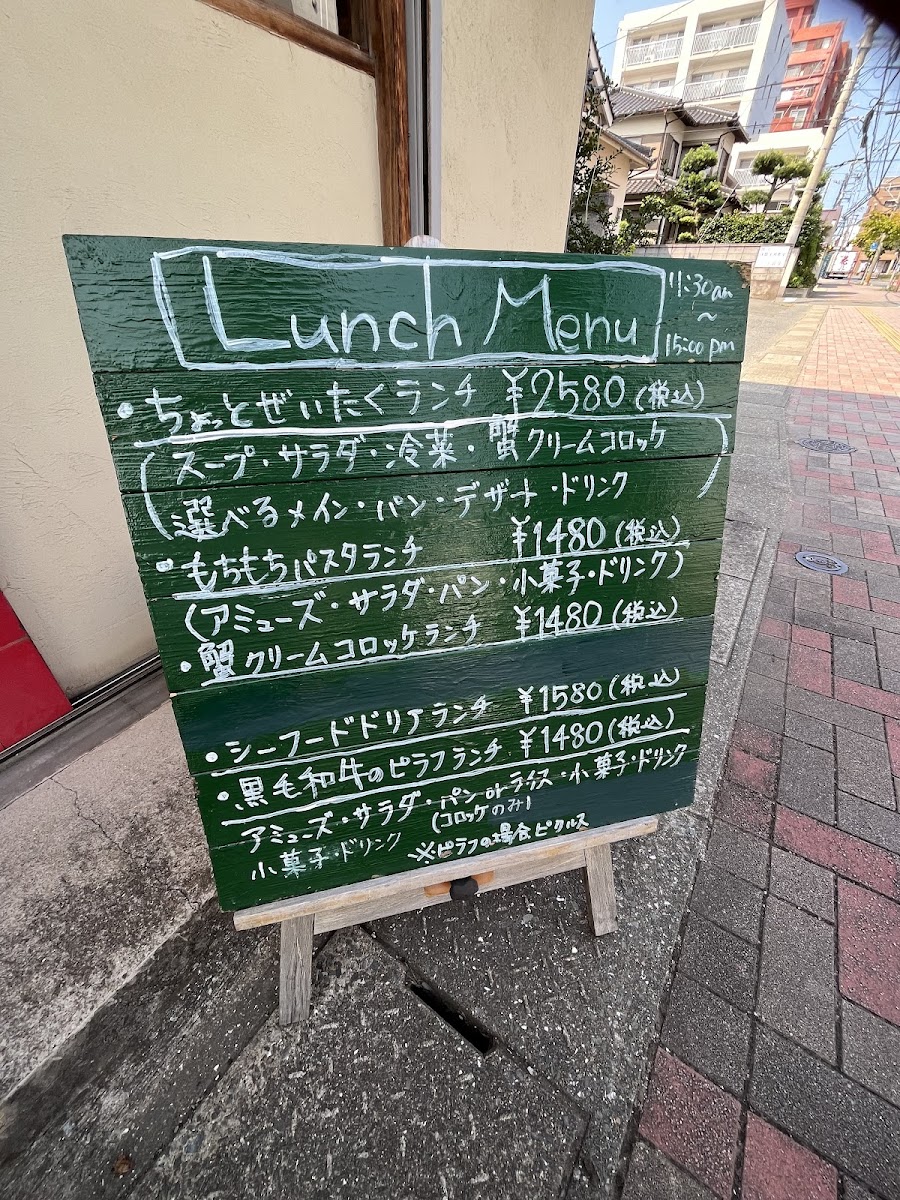 Lunch Menu
11:30am
～
15:00pm
・ちょっとぜいたくランチ ¥2580(税込)
(スープ・サラダ・冷菜・蟹クリームコロッケ
選べるメイン・パン・デザート・ドリンク)
・もちもちパスタランチ ¥1480(税込)
(アミューズ・サラダ・パン・小菓子・ドリンク)
・蟹クリームコロッケランチ ¥1480(税込)
・シーフードドリアランチ ¥1580(税込)
・黒毛和牛のピラフランチ ¥1480(税込)
アミューズ・サラダ・パンorライス・小菓子・ドリンク
(コロッケのみ)
小菓子・ドリンク ※ピラフの場合ピクルス